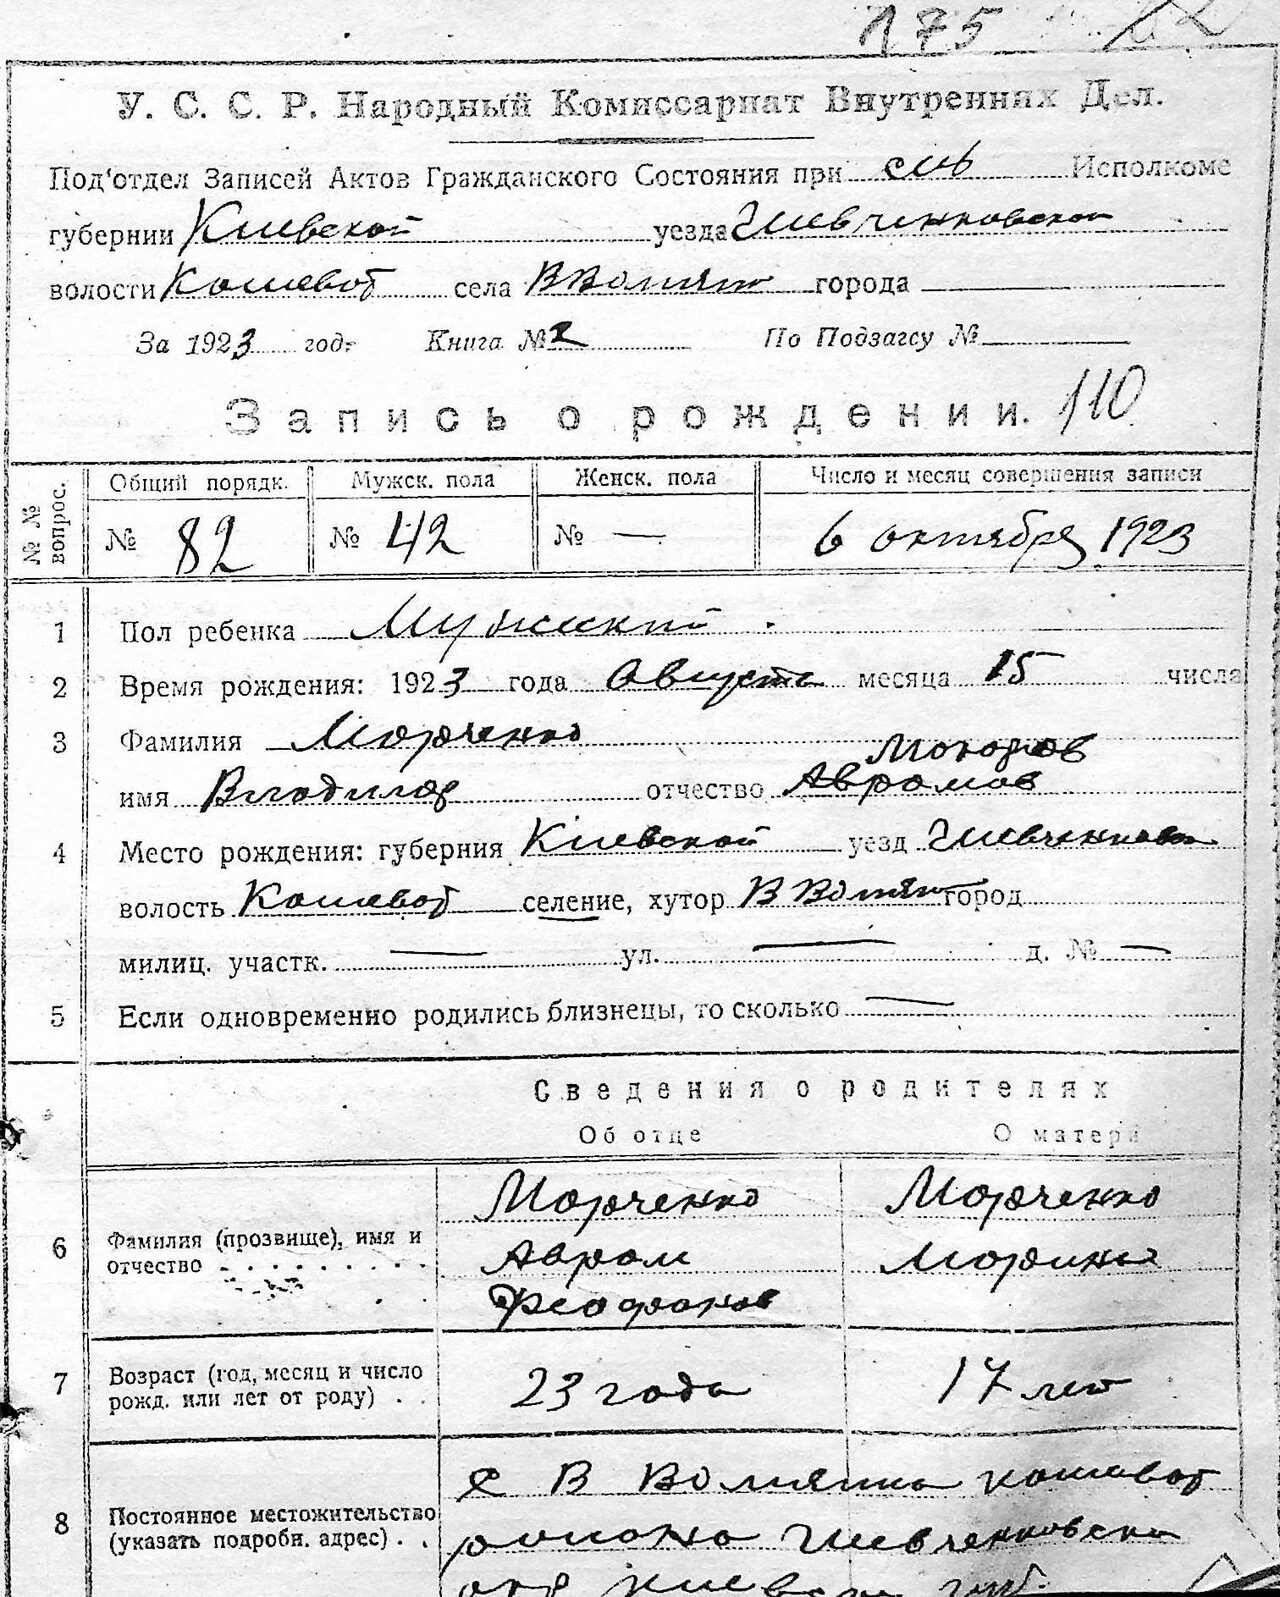 175
У. С. С. Р. Народный Комиссариат Внутренних Дел.
Под'отдел Записей Актов Гражданского Состояния при Исполкоме
губернии Киевской уезда Шевченковской
волости Кошеват села города
За 1923 год. Книга № 2 По Подзагсу №
Запись о рождении. 110
№ № вопрос. Общий порядк. Мужск. пола Женск. пола Число и месяц совершения записи
№ 82 № 42 № — 6 октября 1923
1 Пол ребенка Мужский
2 Время рождения: 1923 года Августа месяца 15 числа
3 Фамилия Марченко
имя Владимар отчество Аврамов
4 Место рождения: губерния Киевской уезд Шевченков
волость Кошеват селение, хутор город
милиц. участк. — ул. — д. № —
5 Если одновременно родились близнецы, то сколько —
Сведения о родителях
Об отце О матери
Марченко Марченко
6 Фамилия (прозвище), имя и отчество Аврам Марина
Феофанов
7 Возраст (год, месяц и число рожд. или лет от роду) 23 года 17 лет
8 Постоянное местожительство (указать подробн. адрес)
с В кошеват
района Шевченковско
окр Киевско губ.